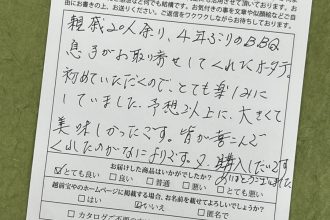 由にお書きの上、お送りください。ご返信をワクワクしながらお待ちしております。
親戚20人余り、4年ぶりのBBQ
息子がお取り寄せしてくれたホタテ。
初めていただくので、とても楽しみに
していました。予想以上に、大きくて
美味しかったです。皆が喜こんで
くれたのがなによりです。又、購入したいです
ありがとうございました
お届けした商品はいかがでしたか?
とても良い □良い □普通 □悪い □とても悪い
越前宝やのホームページに掲載する場合、お名前を載せてよろしいでしょうか?
□はい □いいえ □匿名で
□カタログ